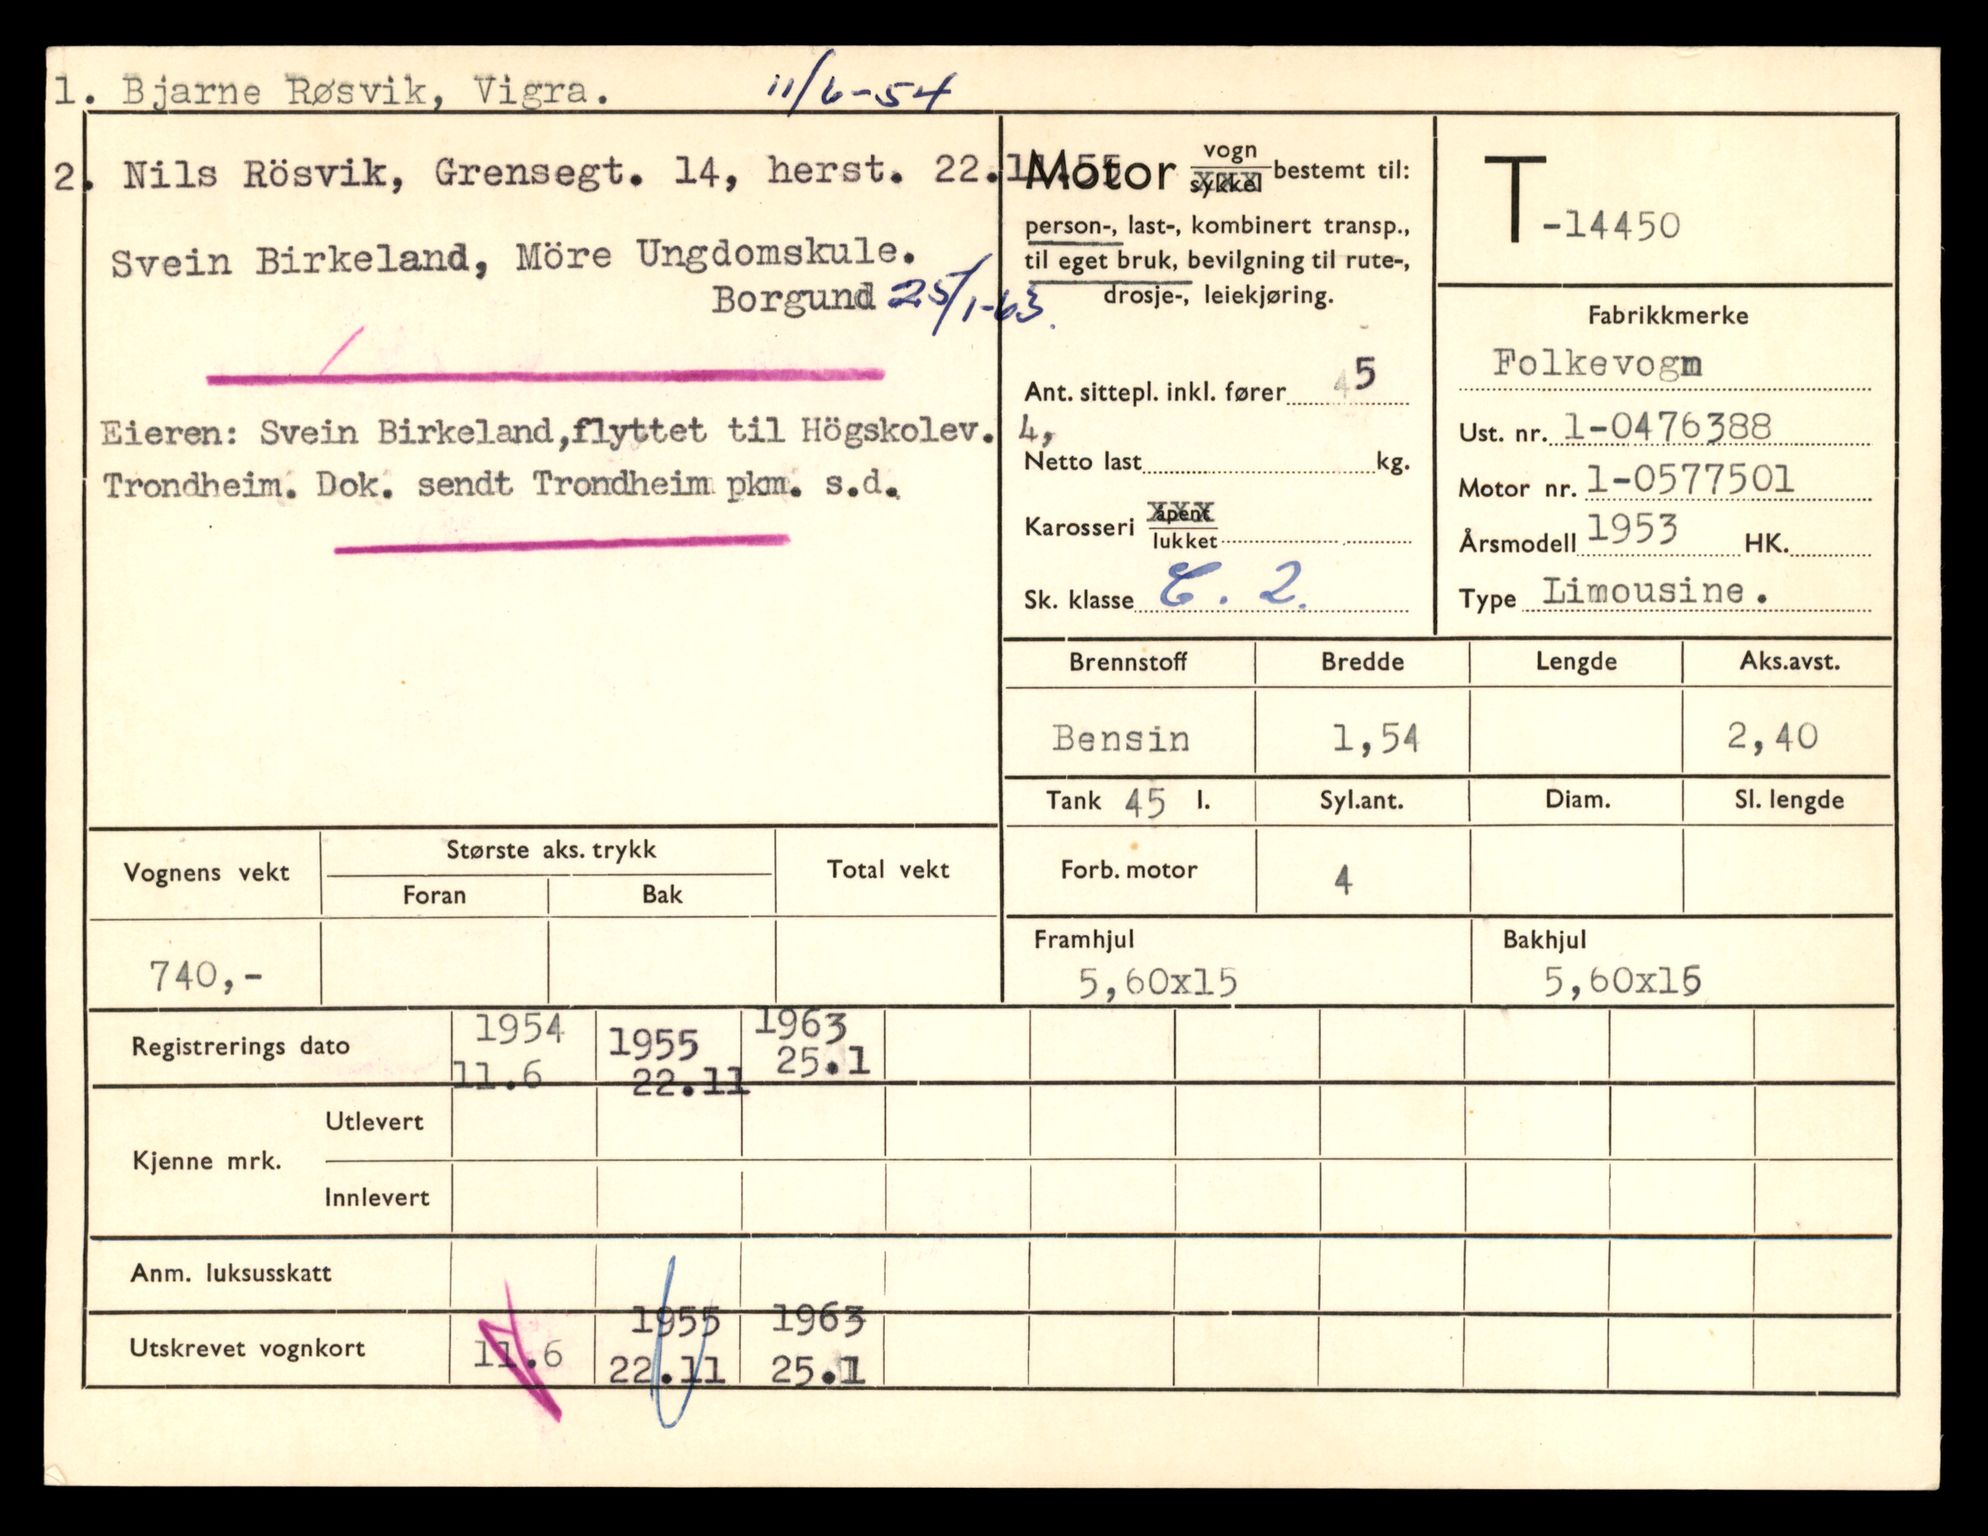 1. Bjarne Røsvik, Vigra. 11/6-54
2. Nils Rösvik, Grensegt. 14, herst. 22.11.55
Svein Birkeland, Möre Ungdomskule.
Borgund 25/1-63.
Eieren: Svein Birkeland,flyttet til Högskolev. 4,
Trondheim. Dok. sendt Trondheim pkm. s.d.
Motor vogn sykkel bestemt til:
person-, last-, kombinert transp.,
til eget bruk, bevilgning til rute-,
drosje-, leiekjøring.
Ant. sittepl. inkl. fører 4 5
Netto last kg.
Karosseri åpent lukket
Sk. klasse C. 2.
T-14450
Fabrikkmerke
Folkevogn
Ust. nr. 1-0476388
Motor nr. 1-0577501
Årsmodell 1953 HK.
Type Limousine.
Brennstoff Bredde Lengde Aks.avst.
Bensin 1,54 2,40
Tank 45 l. Syl.ant. Diam. Sl. lengde
Forb. motor 4
Framhjul Bakhjul
5,60x15 5,60x15
Vognens vekt Største aks. trykk Total vekt
Foran Bak
740,-
Registrerings dato 1954 1955 1963
11.6 22.11 25.1
Kjenne mrk. Utlevert
Innlevert
Anm. luksusskatt
Utskrevet vognkort 1955 1963
11.6 22.11 25.1